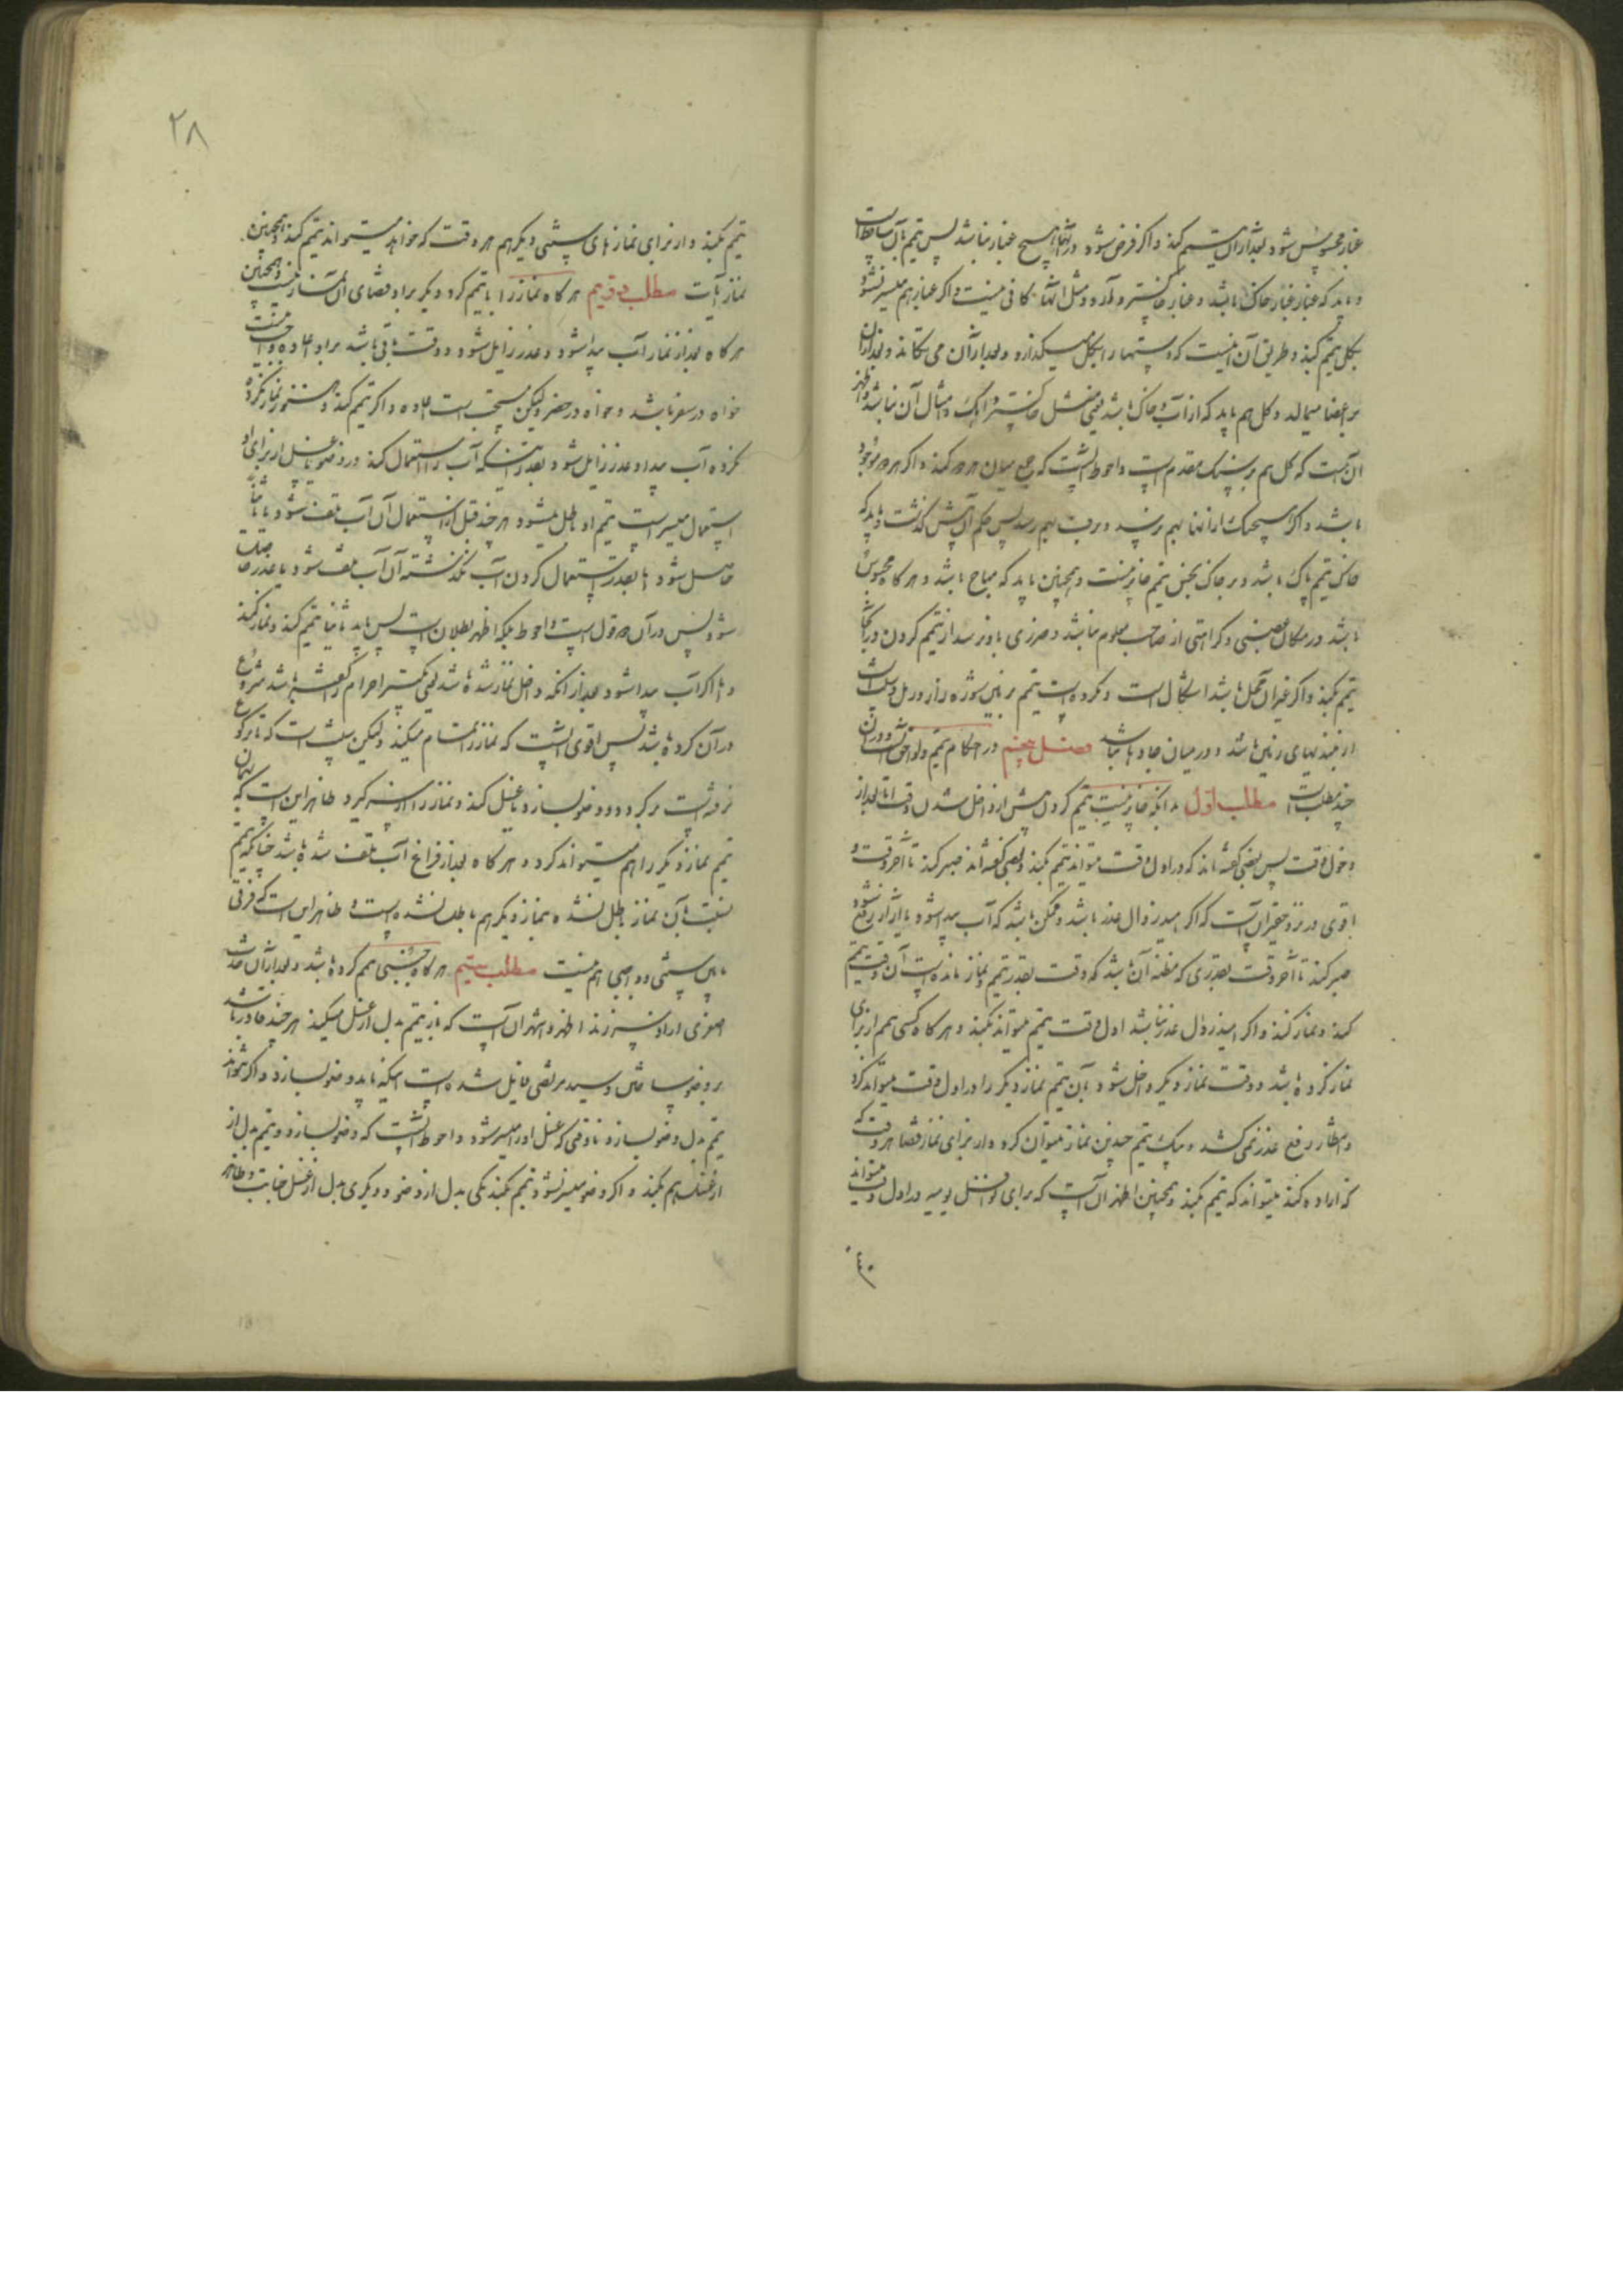 غبار محسوس شود بعد از آن تیمم کند و اگر فرض شود که در آنها هیچ غبار نباشد پس تیمم بآن ساقط است
و باید که غبار غبار خاک باشد و غبار خاکستر و آرد و مثل آنها کافی نیست و اگر غبار هم میسر نشود
بگل تیمم کند و طریق آن اینست که دستها را بگل میگذارد و بعد از آن می تکاند و بعد از آن
بر اعضا میمالد و گل هم باید که از آب و خاک باشد یعنی مثل خاکستر و آهک و امثال آن نباشد و اظهر
آن است که گل هم بر سنگ مقدم است و احوط آنست که جمع میان هر دو کند و اگر هر دو موجود
باشد و اگر هیچیک از اینها بهم نرسد و برف بهم رسد پس حکم آن پیش گذشت و باید که
خاک تیمم پاک باشد و بر خاک نجس تیمم جایز نیست و همچنین باید که مباح باشد و هر گاه محبوس
باشد در مکان غصبی و کراهتی از صاحب معلوم نباشد و ضرری باو نرسد از تیمم کردن در آنجا
تیمم بکند و اگر غیر آن محل باشد اشکال است و مکروه است تیمم بر زمین شوره زار و رمل و سنت است
از بلندیهای زمین باشد و در میان جاده ها نباشد فصل پنجم در احکام تیمم و لواحق آنست و در آن
چند مطلب است مطلب اول بدانکه جایز نیست تیمم کردن پیش از داخل شدن وقت اما بعد از
دخول وقت پس بعضی گفته اند که در اول وقت میتواند تیمم بکند و بعضی گفته اند صبر کند تا آخر وقت و
اقوی در نزد حقیر آن است که اگر امید زوال عذر باشد و ممکن باشد که آب پیدا شود یا آزار رفع شود
صبر کند تا آخر وقت بقدری که مظنه آن باشد که وقت بقدر تیمم و نماز مانده است آن وقت تیمم
کند و نماز کند و اگر امید زوال عذر نباشد اول وقت تیمم میتواند بکند و هر گاه کسی تیمم از برای
نماز کرده باشد و وقت نماز دیگر داخل شود بآن تیمم نماز دیگر را در اول وقت میتواند کرد
و انتظار رفع عذر نمی کشد و بیک تیمم چندین نماز میتوان کرد و از برای نماز قضا هر وقت که
که اراده کند میتواند که تیمم بکند و همچنین اظهر آن است که برای نوافل یومیه در اول وقت میتواند
۲۸
تیمم بکند و از برای نمازهای سنتی دیگر هم هر وقت که خواهد میتواند تیمم کند و همچنین
نماز آیات مطلب دویم هر گاه نماز را با تیمم کرد دیگر بر او قضای آن نماز نیست و همچنین
هر گاه بعد از نماز آب پیدا شود و عذر زایل شود و وقت باقی باشد بر او اعاده واجب نیست
خواه در سفر باشد و خواه در حضر و لیکن مستحب است اعاده و اگر تیمم کند و هنوز نماز نکرده
کرده آب پیدا و عذر زایل شود بقدر اینکه آب را استعمال کند در وضو یا غسل از برای او
استعمال میسر است تیمم او باطل میشود هر چند قبل از استعمال آن آب تلف شود یا مانعی
حاصل شود اما بقدر استعمال کردن آب نگذشته آن آب تلف شود یا عذر حاصل
شود پس در آن دو قول است و احوط بلکه اظهر بطلان است پس باید ثانیا تیمم کند و نماز کند
و اما اگر آب پیدا شود بعد از آنکه داخل نماز شده باشد یعنی تکبیر احرام را گفته باشد شروع
در آن کرده باشد پس اقوی آنست که نماز را تمام میکند و لیکن سنت است که تا برکوع
نرفته است برگردد و وضو بسازد یا غسل کند و نماز را از سر گیرد ظاهر این است که بهمان
تیمم نماز دیگر را هم میتواند کرد و هر گاه بعد از فراغ آب تلف شده باشد چنانکه تیمم
نسبت بآن نماز باطل نشده بنماز دیگر هم باطل نشده است و ظاهر این است که فرقی
مابین سنتی و واجبی هم نیست مطلب سیم هر گاه جنبی تیمم کرده باشد و بعد از آن حدث
اصغری از او سر زند اظهر و اشهر آن است که باز تیمم بدل از غسل میکند هر چند قادر باشد
بر وضو ساختن و سید مرتضی قایل شده است اینکه باید وضو بسازد و اگر نتواند
تیمم بدل وضو بسازد تا وقتی که غسل او را میسر شود و احوط آنست که وضو بسازد و تیمم بدل از
از غسل هم بکند و اگر وضو میسر نشود دو تیمم بکند یکی بدل از وضو و دیگری بدل از غسل جنابت و ظاهر